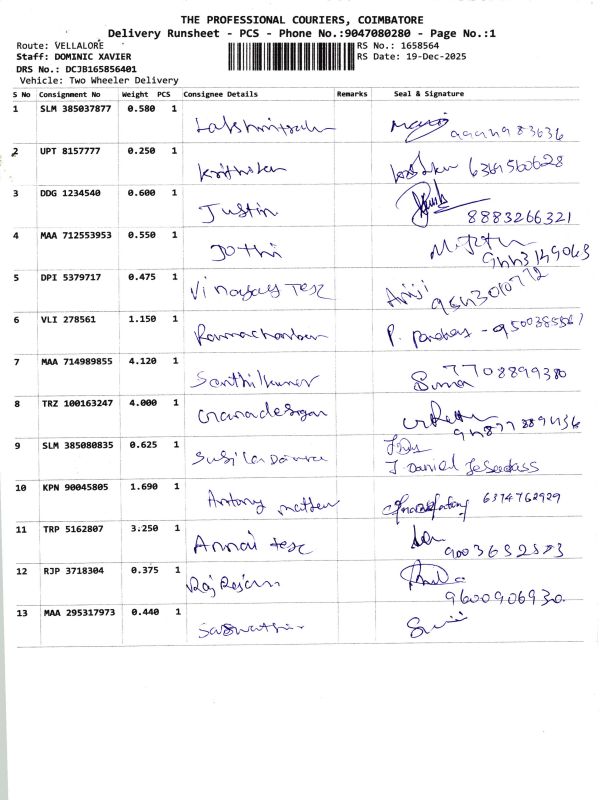 THE PROFESSIONAL COURIERS, COIMBATORE
Delivery Runsheet - PCS - Phone No.:9047080280 - Page No.:1
Route: VELLALORE
RS No.: 1658564
Staff: DOMINIC XAVIER
RS Date: 19-Dec-2025
DRS No.: DCJB165856401
Vehicle: Two Wheeler Delivery
S No Consignment No Weight PCS Consignee Details Remarks Seal & Signature
1 SLM 385037877 0.580 1
2 UPT 8157777 0.250 1
6381560628
3 DDG 1234540 0.600 1 Justin
8883266321
4 MAA 712553953 0.550 1 Jothi
5 DPI 5379717 0.475 1 Vinayaga Tex
6 VLI 278561 1.150 1 Ramachandran P.
7 MAA 714989855 4.120 1 Senthilkumar 7708899380
8 TRZ 100163247 4.000 1 Gnanadesigan
9 SLM 385080835 0.625 1
J Daniel Jesudass
10 KPN 90045805 1.690 1 Antony 6374762929
11 TRP 5162807 3.250 1 Annai tex
12 RJP 3718304 0.375 1 Raj Rajan
9600906930
13 MAA 295317973 0.440 1